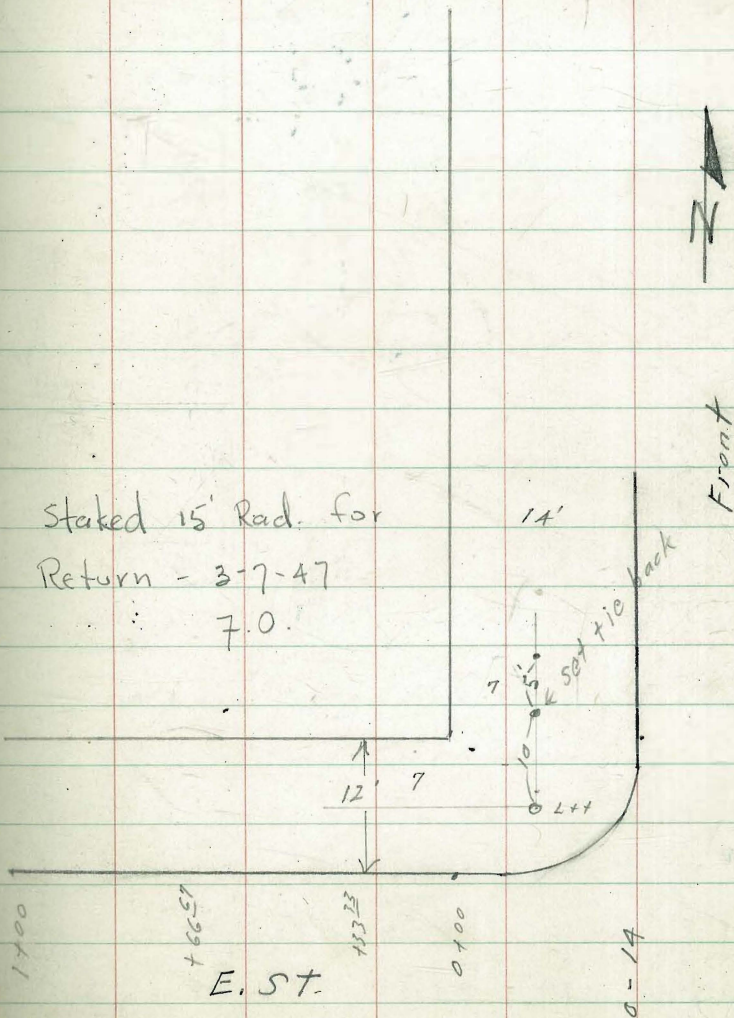 N
Front
Staked 15' Rad. for
Return - 3-7-47
7.0.
14'
set tie back
7
5'
10
L++
12'
7
1+00
+66 67
+33 33
0+00
0-14
E. St.